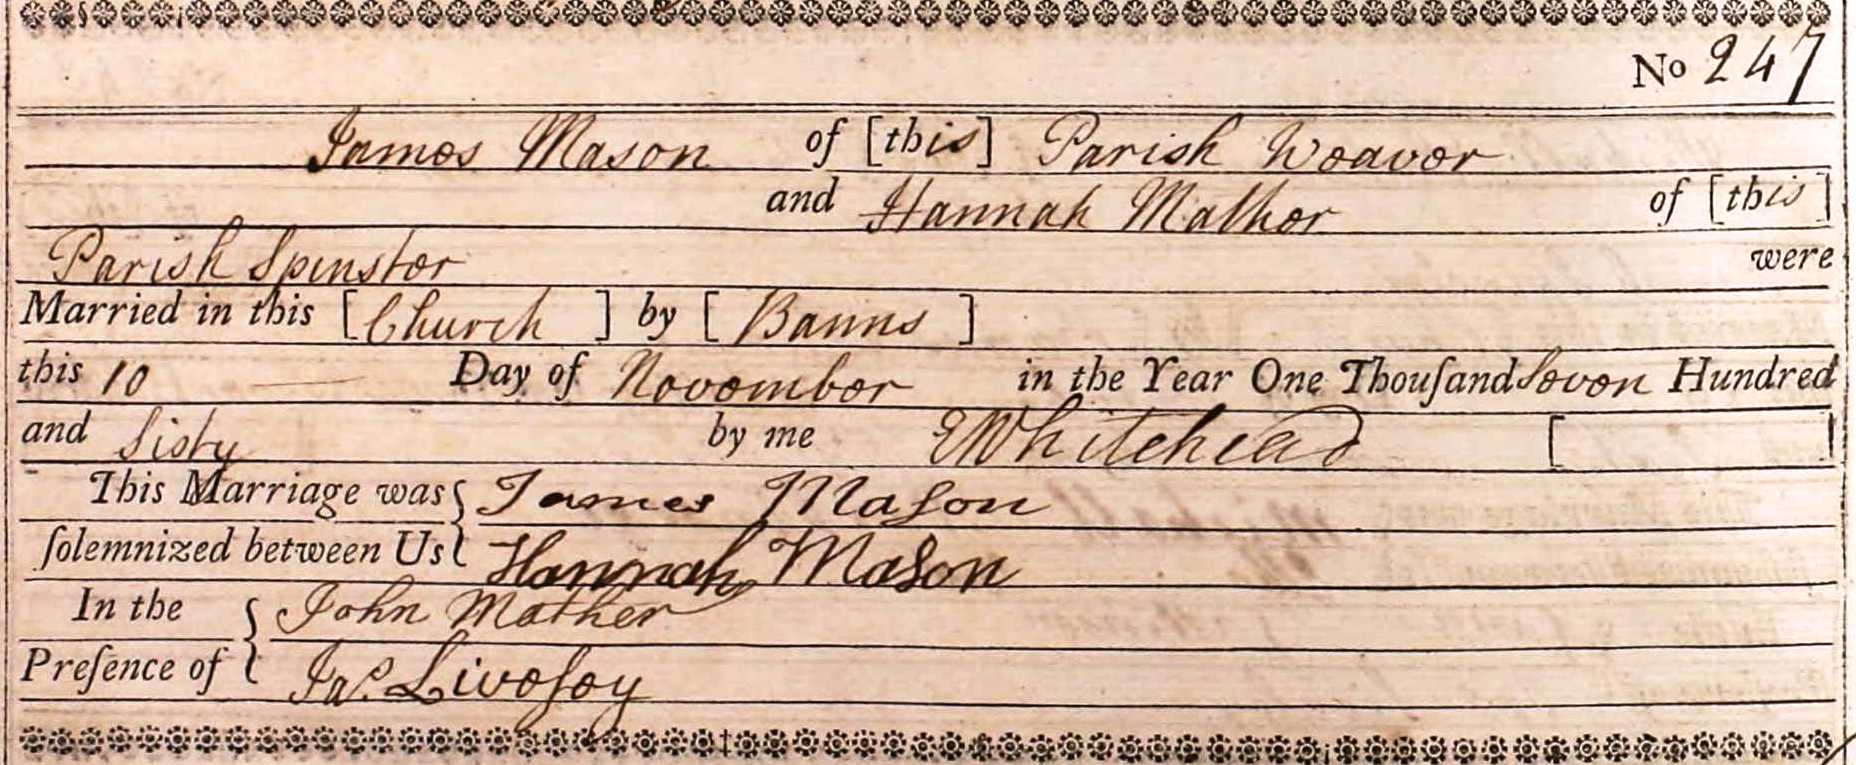 No 247
James Mason of [this] Parish Weaver
and Hannah Mather of [this]
Parish Spinster were
Married in this [Church] by [Banns]
this 10 Day of November in the Year One Thouſand Seven Hundred
and Sixty by me E Whitehead [ ]
This Marriage was { James Maſon
ſolemnized between Us { Hannah Mason
In the { John Mather
Preſence of { Jas. Liveſey